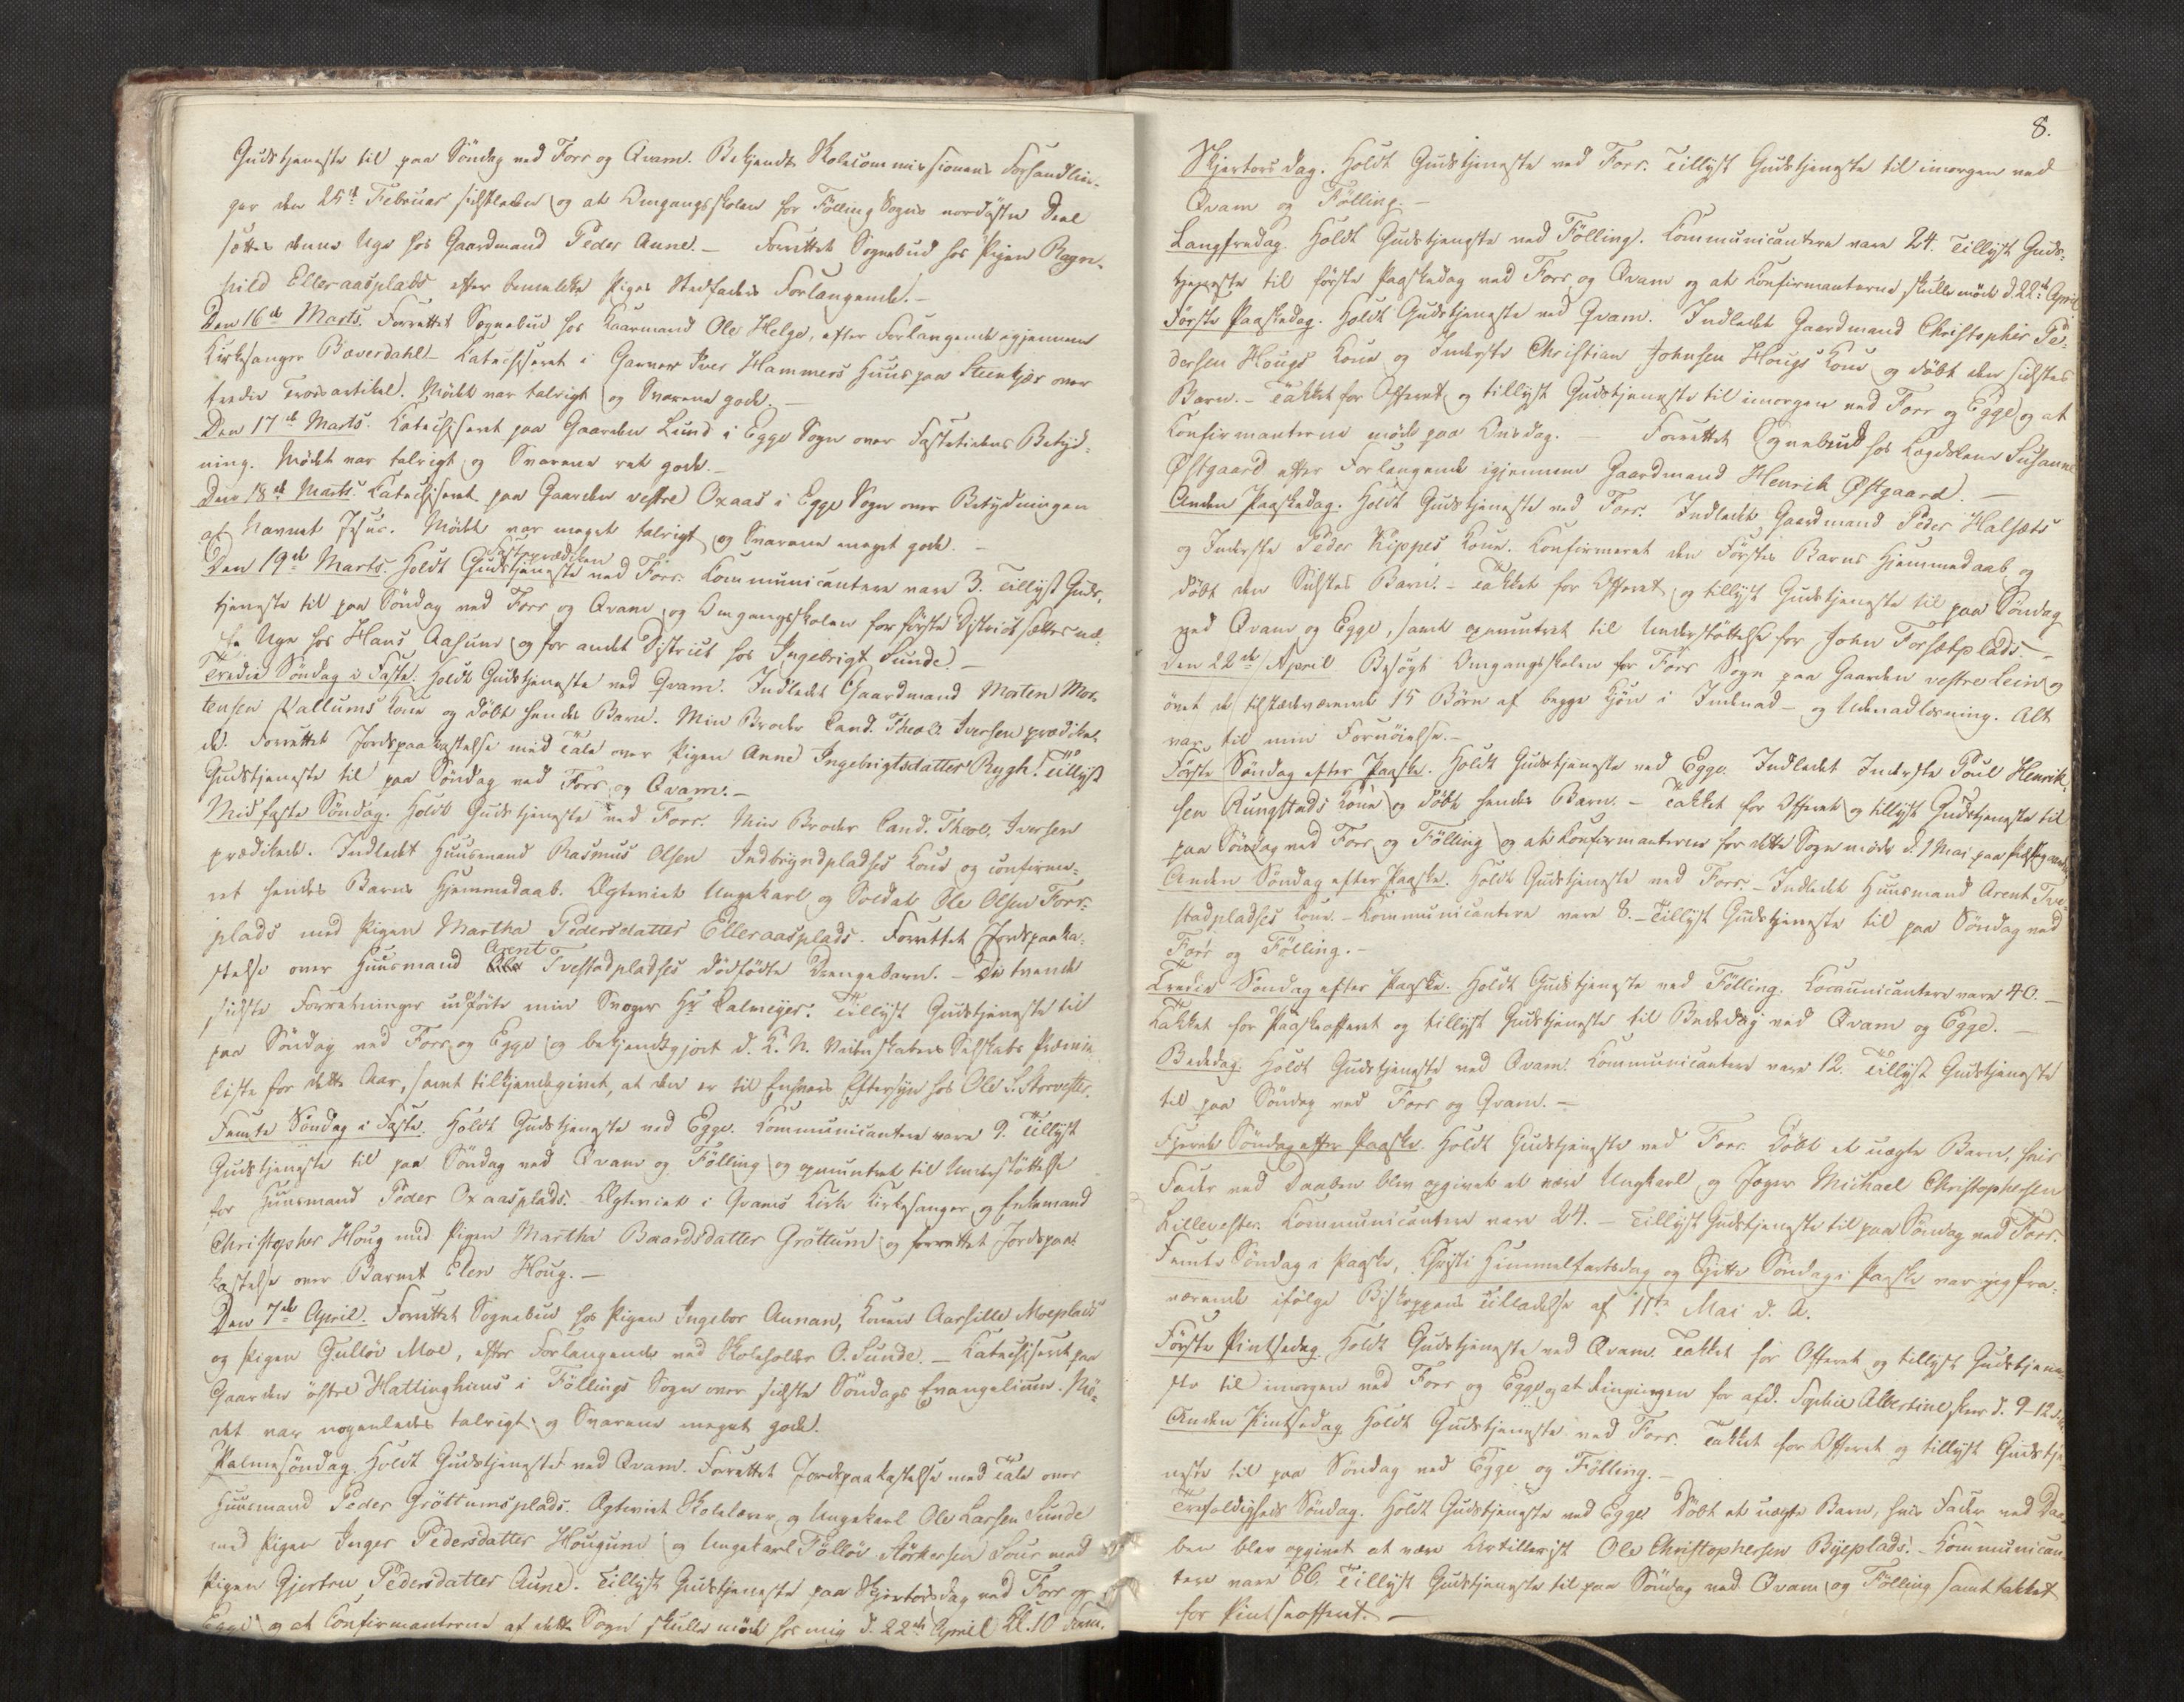 Gudstjeneste til paa Söndag ved Forr og Qvam. Bekjendt Skolecommissionens Forhandlin-
ger den 25de Februar sidstleden og at Omgangsskolen for Fölling Sogns nordöstre Deel
sættes denne Uge hos Gaardmand Peder Aune. – Forrettet Sognebud hos Pigen Ragn-
hild Elleraasplads efter bemeldte Piges Stedfaders Forlangende. –
Den 16de Marts. Forrettet Sognebud hos Kaarmand Ole Helge, efter Forlangende igjennem
Kirkesanger Bæverdahl – Katechiseret i Garver Iver Hammers Huus paa Steenkjær over
tredie Troesartikel. Mödet var talrigt og Svarene gode. –
Den 17de Marts. Katechiseret paa Gaarden Lund i Egge Sogn over Fastetidens Betyd-
ning. Mödet var talrigt og Svarene ret gode. –
Den 18de Marts. Katechiseret paa Gaarden vestre Oxaas i Egge Sogn over Betydningen
af Navnet Jesus. Mödet var meget talrigt og Svarene meget gode. –
Fasteprædiken
Den 19de Marts. Holdt Gudstjeneste ved Forr. Communicantere vare 3. Tillyst Guds-
tjeneste til paa Söndag ved Forr og Qvam og Omgangsskolen for förste District sættes næ-
ste Uge hos Hans Aasum og for andet District hos Ingebrigt Sunde. –
Tredie Söndag i Faste. Holdt Gudstjeneste ved Qvam. Indledet Gaardmand Morten Mor-
tensen Vallums Kone og döbt hendes Barn. Min Broder Cand. Theol. Iversen prædike-
de. Forrettet Jordspaakastelse med Tale over Pigen Anne Ingebrigtsdatter Rygh. Tillyst
Gudstjeneste til paa Söndag ved Forr og Qvam. –
Midfaste Söndag. Holdt Gudstjeneste ved Forr. Min Broder Cand. Theol. Iversen
prædikede. Indledet Huusmand Rasmus Olsen Indbryndpladses Kone og confirme-
ret hendes Barns Hjemmedaab. Ægteviet Ungekarl og Soldat Ole Olsen Forr-
plads med Pigen Martha Pedersdatter Elleraasplads. Forrettet Jordspaaka-
Arent
stelse over Huusmand Tvestadpladses dödfödte Drengebarn. – De tvende
sidste Forretninger udförte min Svoger Hr Calmeyer. Tillyst Gudstjeneste til
paa Söndag ved Forr og Egge og bekjendtgjort d. K. N. Videnskabers Selskabs Præmie
liste for dette Aar, samt tilkjendegivet, at den er til Enhvers Eftersyn hos Ole S. Storvester.
Femte Söndag i Faste. Holdt Gudstjeneste ved Egge. Kommunicantere vare 9. Tillyst
Gudstjeneste til paa Söndag ved Qvam og Fölling og opmuntret til Understöttelse
for Huusmand Peder Oxaasplads. Ægteviet i Qvams Kirke Kirkesanger og Enkemand
Christopher Houg med Pigen Martha Baardsdatter Gröttum og forrettet Jordspaa-
kastelse over Barnet Elen Houg. –
Den 7de April. Forrettet Sognebud hos Pigen Ingebor Aunan, Konen Aarsille Moeplads
og Pigen Gullöv Moe, efter Forlangende ved Skoleholder O. Sunde. – Katechiseret paa
Gaarden östre Hattinghuus i Föllings Sogn over sidste Söndags Evangelium. Mö-
det var nogenledes talrigt og Svarene meget gode.
Palmesöndag. Holdt Gudstjeneste ved Qvam. Forrettet Jordspaakastelse med Tale over
Huusmand Peder Gröttumsplads. Ægteviet Skolelærer og Ungekarl Ole Larsen Sunde
med Pigen Inger Pedersdatter Hougum og Ungekarl Tölløv Störkersen Sour med
Pigen Gjertru Pedersdatter Aune. Tillyst Gudstjeneste paa Skjertorsdag ved Forr og
Egge og at Confirmanterne af dette Sogn skulle möde hos mig d. 22de April Kl. 10 Form.
8.
Skjertorsdag. Holdt Gudstjeneste ved Forr. Tillyst Gudstjeneste til imorgen ved
Qvam og Fölling. –
Langfredag. Holdt Gudstjeneste ved Fölling. Communicantere vare 24. Tillyst Guds-
tjeneste til förste Paaskedag ved Forr og Qvam og at Confirmanterne skulle möde d. 22de April.
Förste Paaskedag. Holdt Gudstjeneste ved Qvam. Indledet Gaardmand Christopher Pe-
dersen Hougs Kone og Inderste Christian Johnsen Hougs Kone og döbt den sidstes
Barn. – Takket for Offeret og tillyst Gudstjeneste til imorgen ved Forr og Egge og at
Confirmanterne möde paa Onsdag. – Forrettet Sognebud hos Lægdslem Susanne
Østgaard efter Forlangende igjennem Gaardmand Henrik Østgaard. –
Anden Paaskedag. Holdt Gudstjeneste ved Forr. Indledet Gaardmand Peder Halsæts
og Inderste Peder Kippes Kone. Confirmeret den Förstes Barns Hjemmedaab og
döbt den Sidstes Barn. – Takket for Offeret og tillyst Gudstjeneste til paa Söndag
ved Qvam og Egge, samt opmuntret til Understöttelse for John Forsætplads. –
Den 22de April Besögt Omgangsskolen for Forr Sogn paa Gaarden vestre Lein og
övet de tilstedeværende 15 Börn af begge Kjön i Indenad- og Udenadlæsning. Alt
var til min Fornöielse. –
Förste Söndag efter Paaske. Holdt Gudstjeneste ved Egge. Indledet Inderste Poul Henrik-
sen Rungstads Kone og döbt hendes Barn. – Takket for Offeret og tillyst Gudstjeneste til
paa Söndag ved Forr og Fölling og at Confirmanterne for dette Sogn möde d. 1 Mai paa
Anden Söndag efter Paaske. Holdt Gudstjeneste ved Forr. – Indledet Huusmand Arent Tve-
stadpladses Kone. – Kommunicantere vare 8. – Tillyst Gudstjeneste til paa Söndag ved
Forr og Fölling. –
Tredie Söndag efter Paaske. Holdt Gudstjeneste ved Fölling. Communicantere vare 40. –
Takket for Paaskeofferet og tillyst Gudstjeneste til Bededag ved Qvam og Egge. –
Bededag. Holdt Gudstjeneste ved Qvam. Communicantere vare 12. Tillyst Gudstjeneste
til paa Söndag ved Forr og Qvam. –
Fjerde Söndag efter Paaske. Holdt Gudstjeneste ved Forr. Döbt et uægte Barn, hvis
Fader ved Daaben blev opgivet at være Ungkarl og Jæger Michael Christophersen
Lillevester. Communicantere vare 24. – Tillyst Gudstjeneste til paa Söndag ved Forr.
Femte Söndag i Paaske, Christi Himmelfartsdag og Sjette Söndag i Paaske var jeg fra-
værende ifölge Biskoppens Tilladelse af 11te Mai d. A.
Förste Pintsedag. Holdt Gudstjeneste ved Qvam. Takket for Offeret og tillyst Gudstjene-
ste til imorgen ved Forr og Egge og at Ringningen for afd. Sophie Albertine skeer d. 9–12
Anden Pintsedag. Holdt Gudstjeneste ved Forr. Takket for Offeret og tillyst Gudstje-
neste til paa Söndag ved Egge og Fölling. –
Trefoldigheds Söndag. Holdt Gudstjeneste ved Egge. Döbt et uægte Barn, hvis Fader ved Daa-
ben blev opgivet at være Artillerist Ole Christophersen Byeplads. – Kommunican-
tere vare 86. Tillyst Gudstjeneste til paa Söndag ved Qvam og Fölling samt takket
for Pintseofferet. –